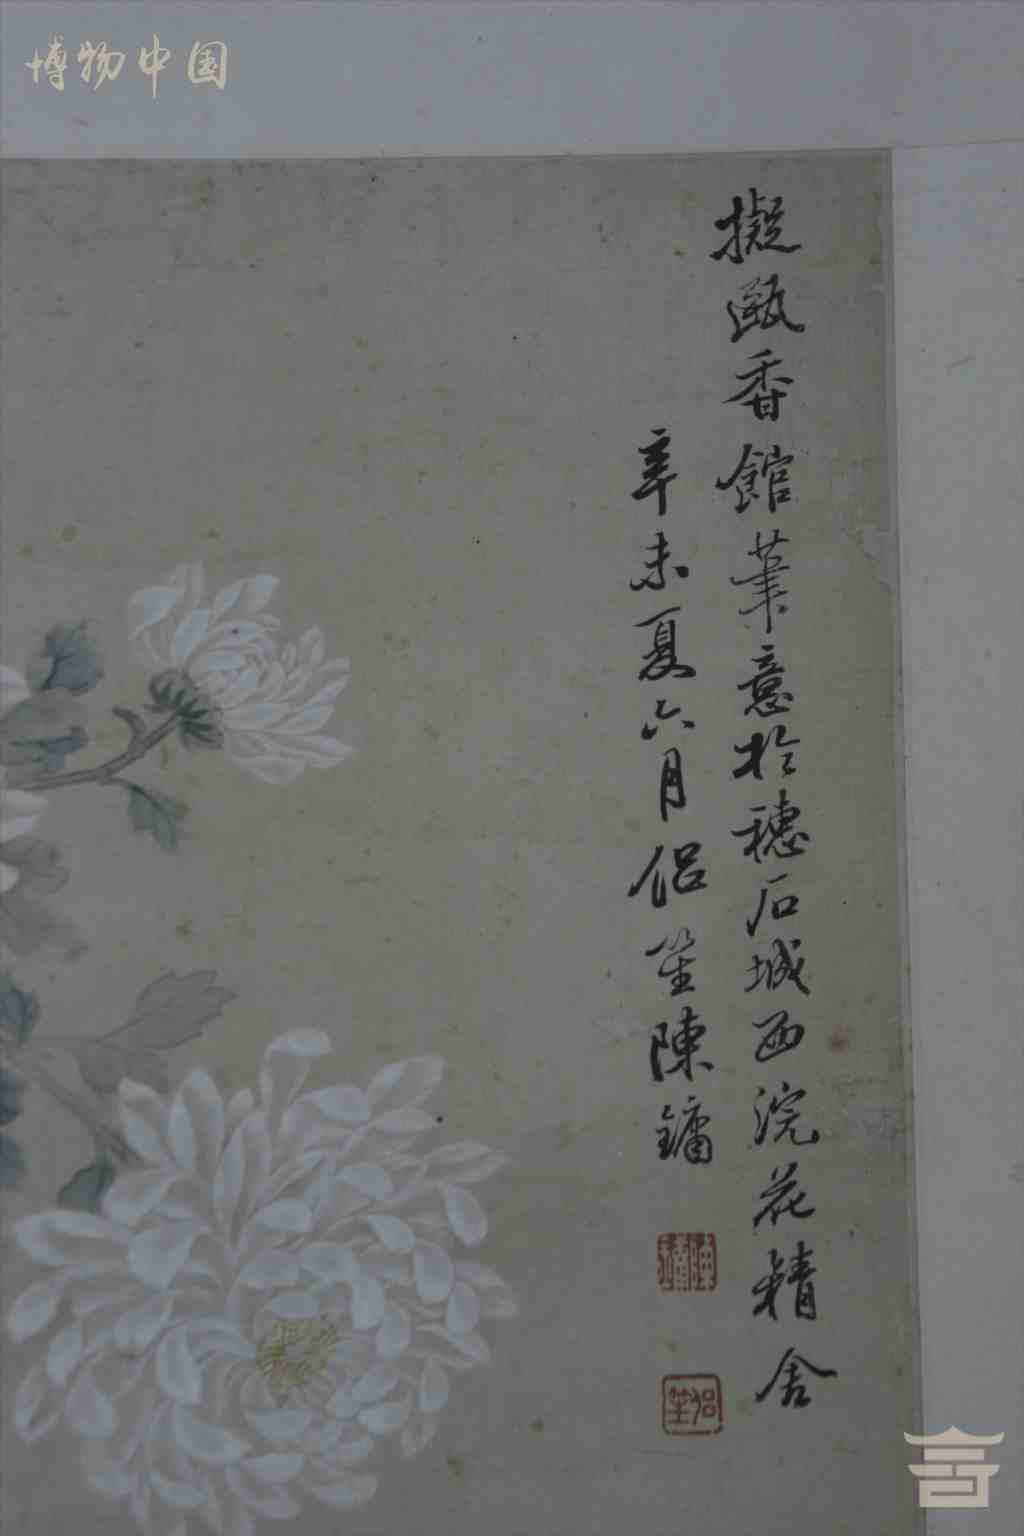 博物中国
擬甌香館筆意於穗石城西浣花精舍
辛未夏六月侣笙陳鏞
侣笙